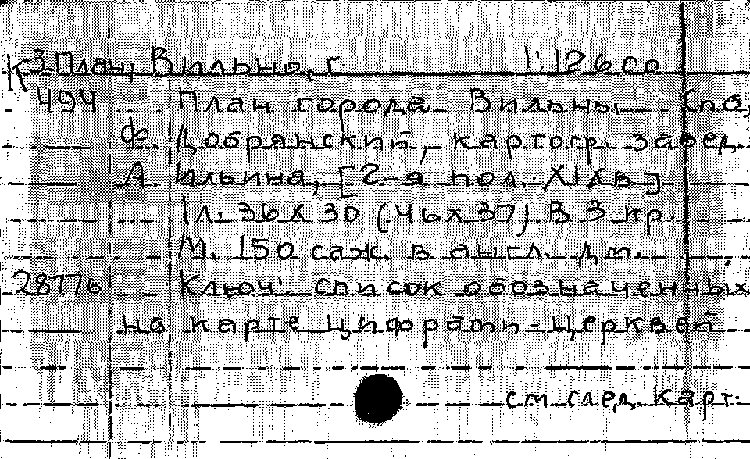 К 3 План, Вильно, г. 1:12600
494 План города Вильны. Спб,
Ф. Добрянский, картогр. завед.
А. Ильина, [2-я пол. XIXв]
1 л. 36х30 (46х37). В 3 кр.
М. 150 саж. в англ. дм.
28776 Ключ: список обозначенных
на карте цифрами - церквей
см след. карт.